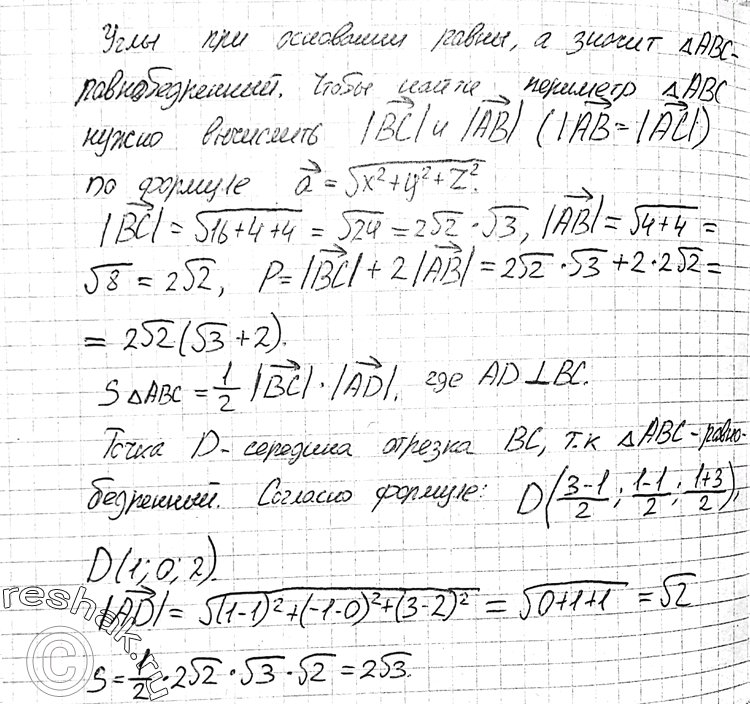 Углы при основании равны, а значит △ABC-
равнобедренный. Чтобы найти периметр △ABC
нужно вычислить |BC⃗| и |AB⃗| (|AB⃗ = |AC⃗|)
по формуле a⃗ = √(x²+y²+z²).
|BC⃗| = √(16+4+4) = √24 = 2√2 · √3, |AB⃗| = √(4+4) =
√8 = 2√2, P = |BC⃗| + 2|AB⃗| = 2√2 · √3 + 2 · 2√2 =
= 2√2(√3 + 2).
S △ABC = 1/2 |BC⃗| · |AD⃗|, где AD ⊥ BC.
Точка D - середина отрезка BC, т.к △ABC - равно-
бедренный. Согласно формуле: D((3-1)/2; (1-1)/2; (1+3)/2),
D(1; 0; 2).
|AD⃗| = √((1-1)²+(-1-0)²+(3-2)²) = √(0+1+1) = √2
S = 1/2 · 2√2 · √3 · √2 = 2√3.
reshak.ru
©